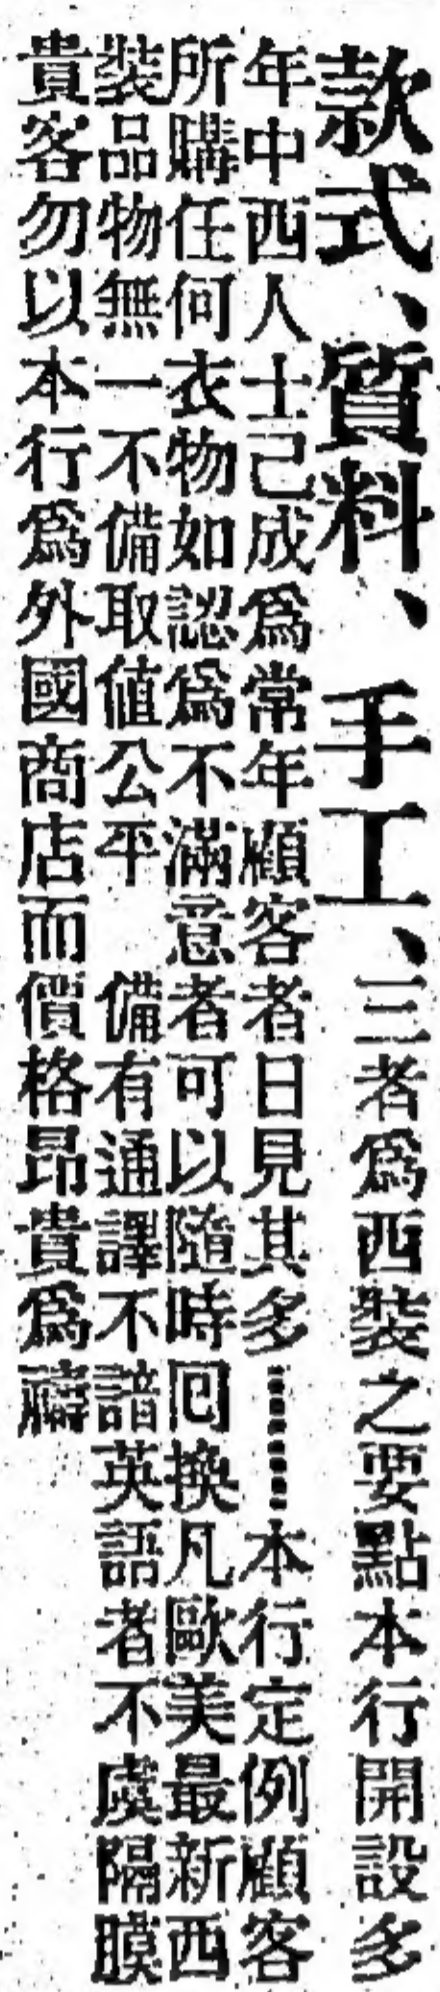 款式、質料、手工、三者爲西裝之要點本行開設多
年中西人士己成爲常年顧客者日見其多………本行定例顧客
所購任何衣物如認爲不滿意者可以隨時囘換凡歐美最新西
裝品物無一不備取値公平　備有通譯不諳英語者不虞隔膜
貴客勿以本行爲外國商店而價格昂貴爲禱